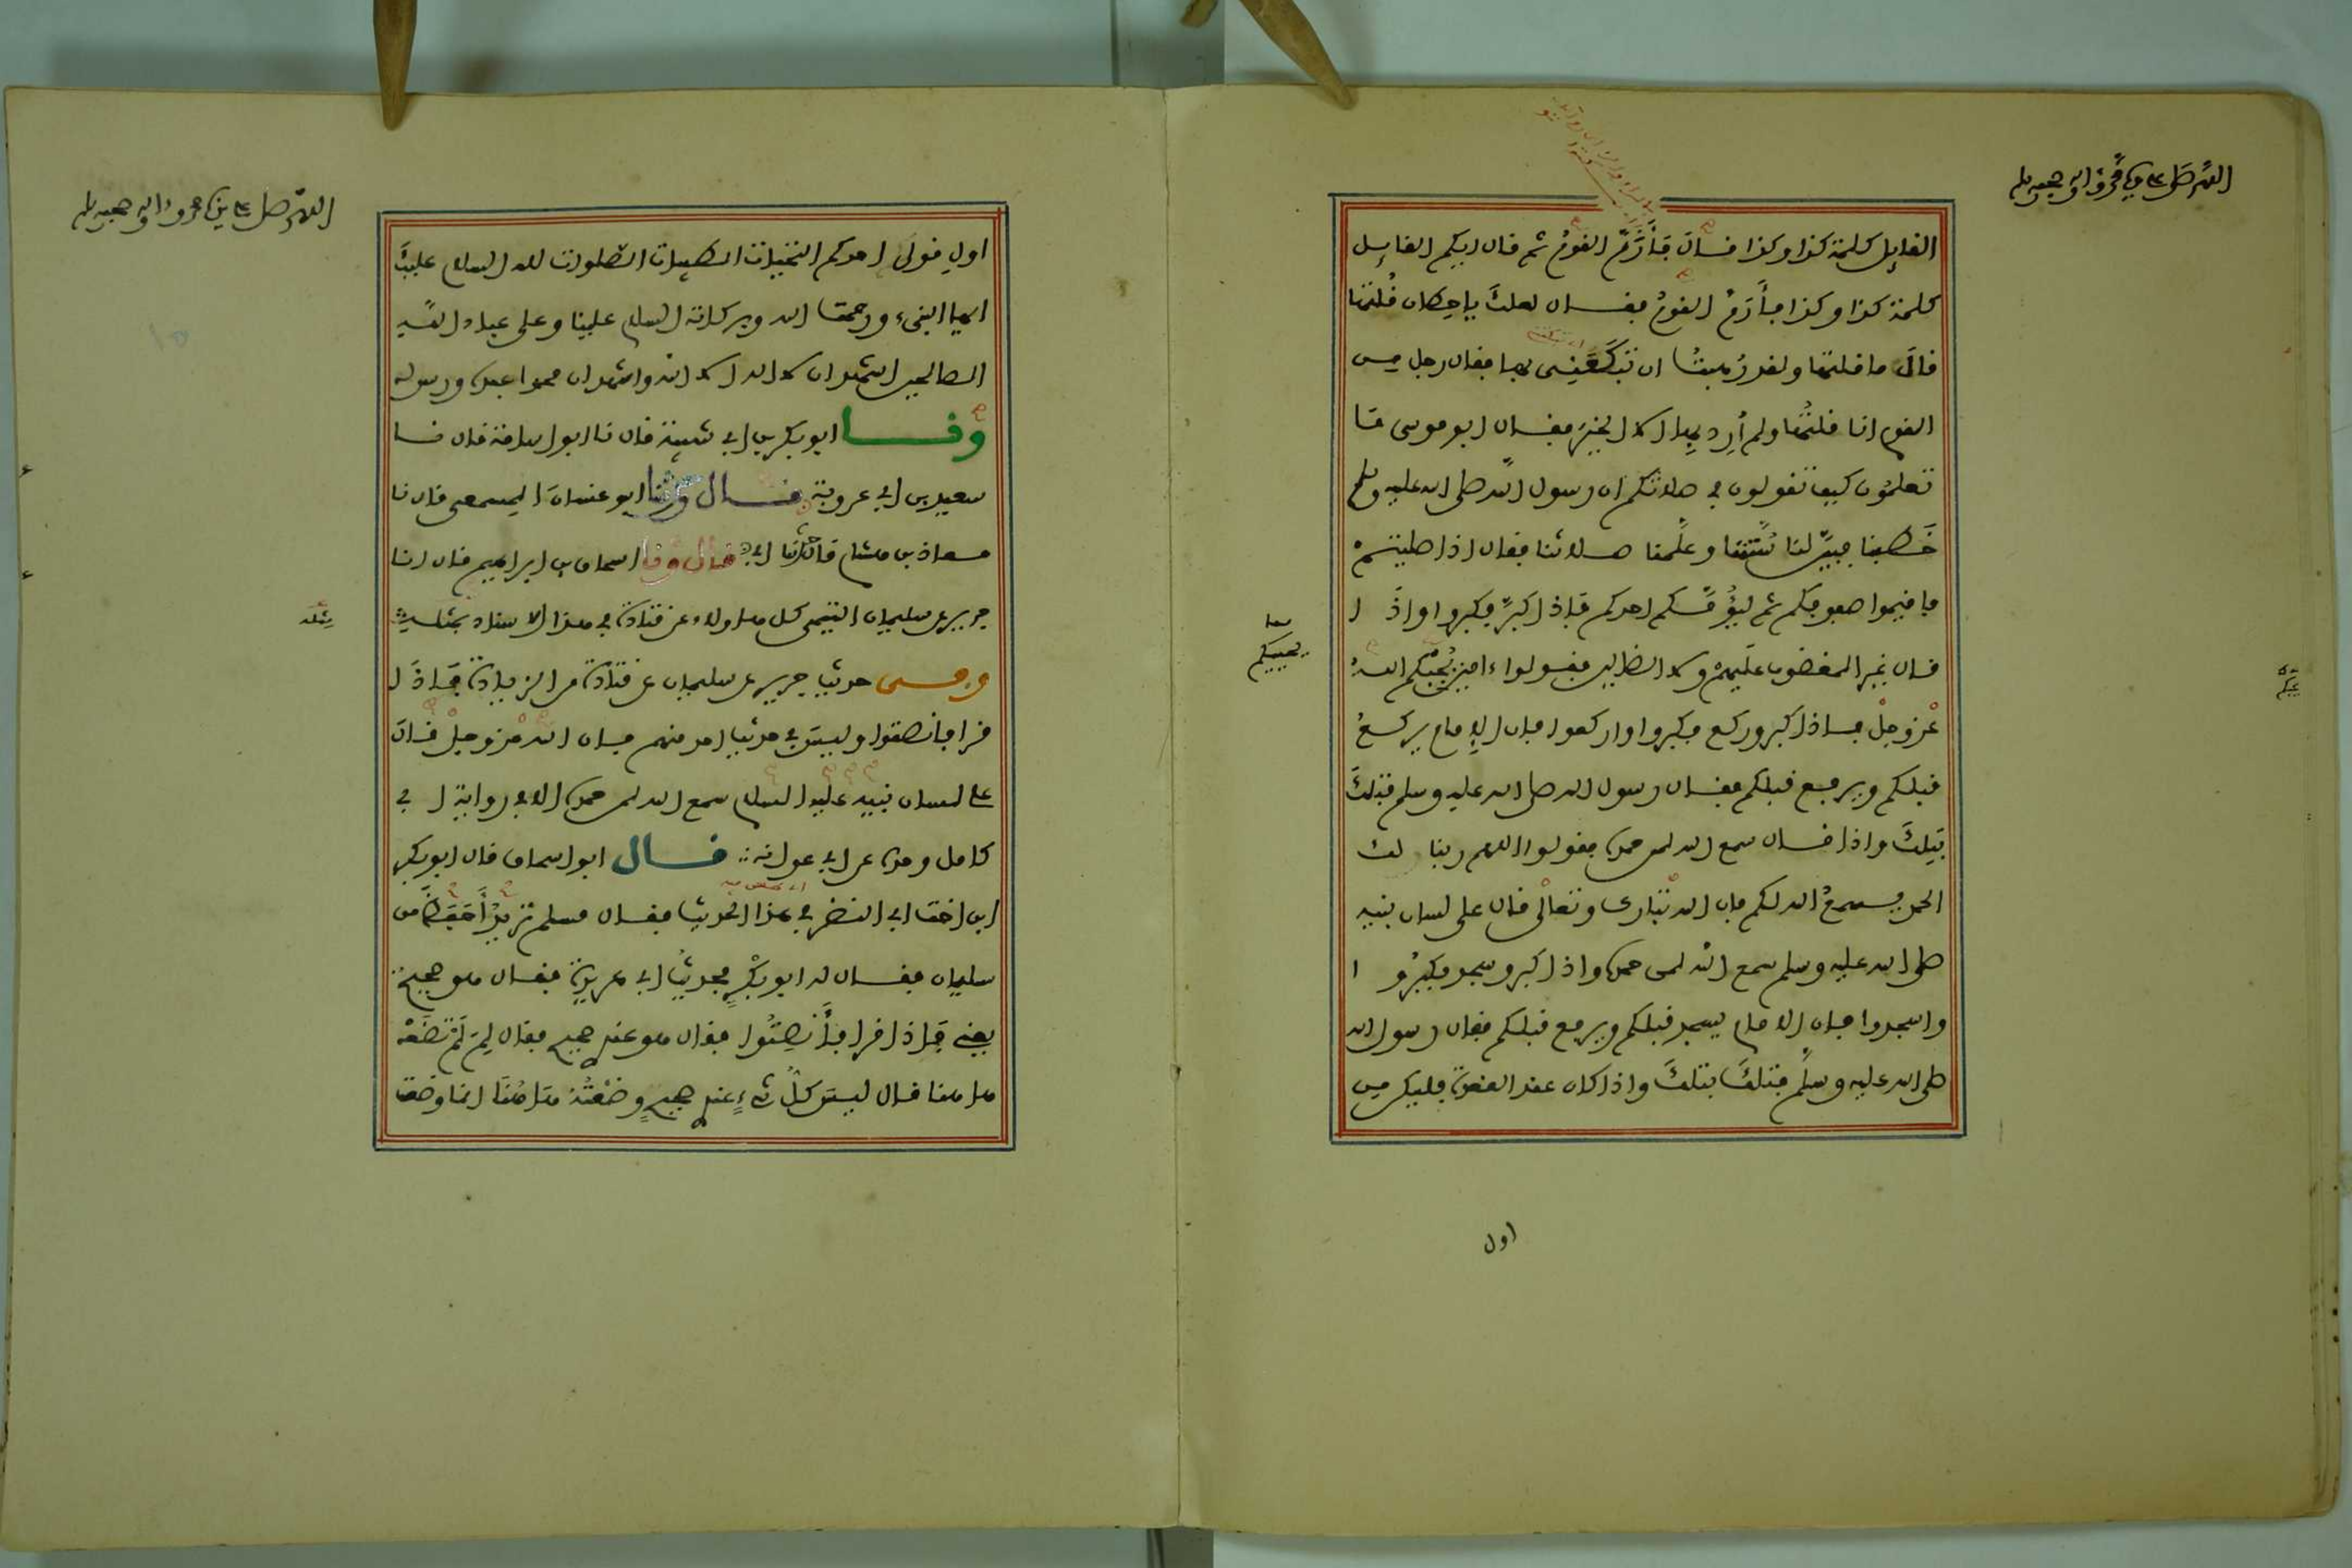 اللهم صل على سيدنا محمد وءاله وصحبه وسلم
القايل كلمة كذا وكذا قال فأرم القوم ثم قال ايكم القايل
كلمة كذا وكذا فأرم القوم فقال لعلك يا حطان قلتها
قال ما قلتها ولقد رهبت ان تبكعني بها فقال رجل من
القوم انا قلتها ولم أرد بها الا الخير فقال ابو موسى مَا
تعلمون كيف تقولون في صلاتكم ان رسول الله صلى الله عليه وسلم
خطبنا فبيّن لنا سُنّتنا وعلّمنا صلاتنا فقال اذا صليتم
فاقيموا صفوفكم ثم ليؤمّكم احدكم فاذا كبّر فكبروا واذَا
قال غير المغضوب عليهم ولا الضالين فقولوا ءامين يُجبْكم الله
عز وجل فاذا كبر وركع فكبروا واركعوا فان الامام يركع
قبلكم ويرفع قبلكم فقال رسول الله صلى الله عليه وسلم فتلكَ
بتلكَ واذا قال سمع الله لمن حمده فقولوا اللهم ربنا لك
الحمد يسمع الله لكم فان الله تبارك وتعالى قال على لسان نبيه
صلى الله عليه وسلم سمع الله لمن حمده واذا كبر وسجد فكبرُوا
واسجدوا فان الامام يسجد قبلكم ويرفع قبلكم فقال رسول الله
صلى الله عليه وسلّم فتلكَ بتلكَ واذا كان عند القعدة فليكن من
يحببكم
اول
اللهم صل على سيدنا محمد وءاله وصحبه وسلم
اول قول احدكم التحيات الطيبات الصلوات لله السلام عليكَ
ايها النبيء ورحمت الله وبركاته السلام علينا وعلى عباد الله
الصالحين اشهد ان لا اله الا الله واشهد ان محمدا عبده ورسوله
وَنا ابو بكر بن ابي شيبة قال نا ابو اسامة قال نا
سعيد بن ابي عروبة قال وحدثنا ابو غسان المسمعي قال نا
معاذ بن هشام قال حدثنا ابي قال ونا اسحاق بن ابراهيم قال انا
جرير عن سليمان التيمي كل هاولاء عن قتادة في هذا الاسناد بمثله
وفى حديث جرير عن سليمان عن قتادة من الزيادة فاذا
قرا فانصتوا وليس في حديث احد منهم فان الله عز وجل قال
على لسان نبيه عليه السلام سمع الله لمن حمده الا في رواية ابي
كامل وحده عن ابي عوانة قال ابو اسحاق قال ابو بكر
ابن اخت ابي النضر في هذا الحديث فقال مسلم تريدُ أحفظَ من
سليمان فقال له ابو بكر فحديث ابي هريرة فقال هو صحيح
يعني فاذا قرا فأنصتُوا فقال هو عندي صحيح فقال لِمَ لَمْ تضَعْهُ
هاهنا قال ليس كلّ شيءٍ عندي صحيحٍ وضعتُه هاهُنَا انما وضعت
مثله